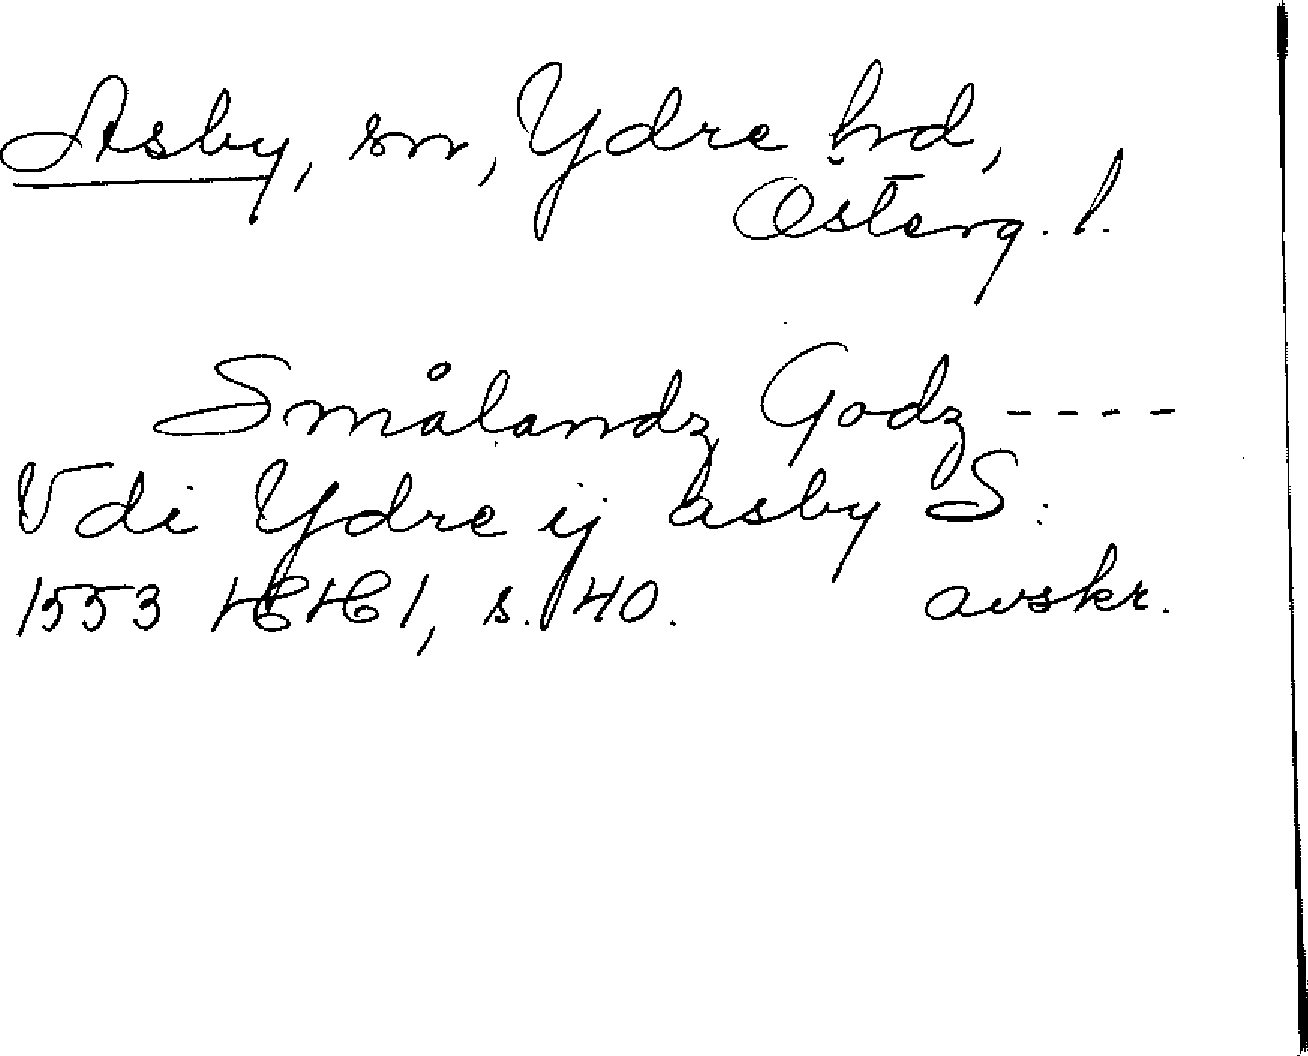 Asby, sn, Ydre hd,
Österg. l.
Smålandz Godz ----
Vdi Ydre ij asby S:
1553 HH 1, s. 140. avskr.